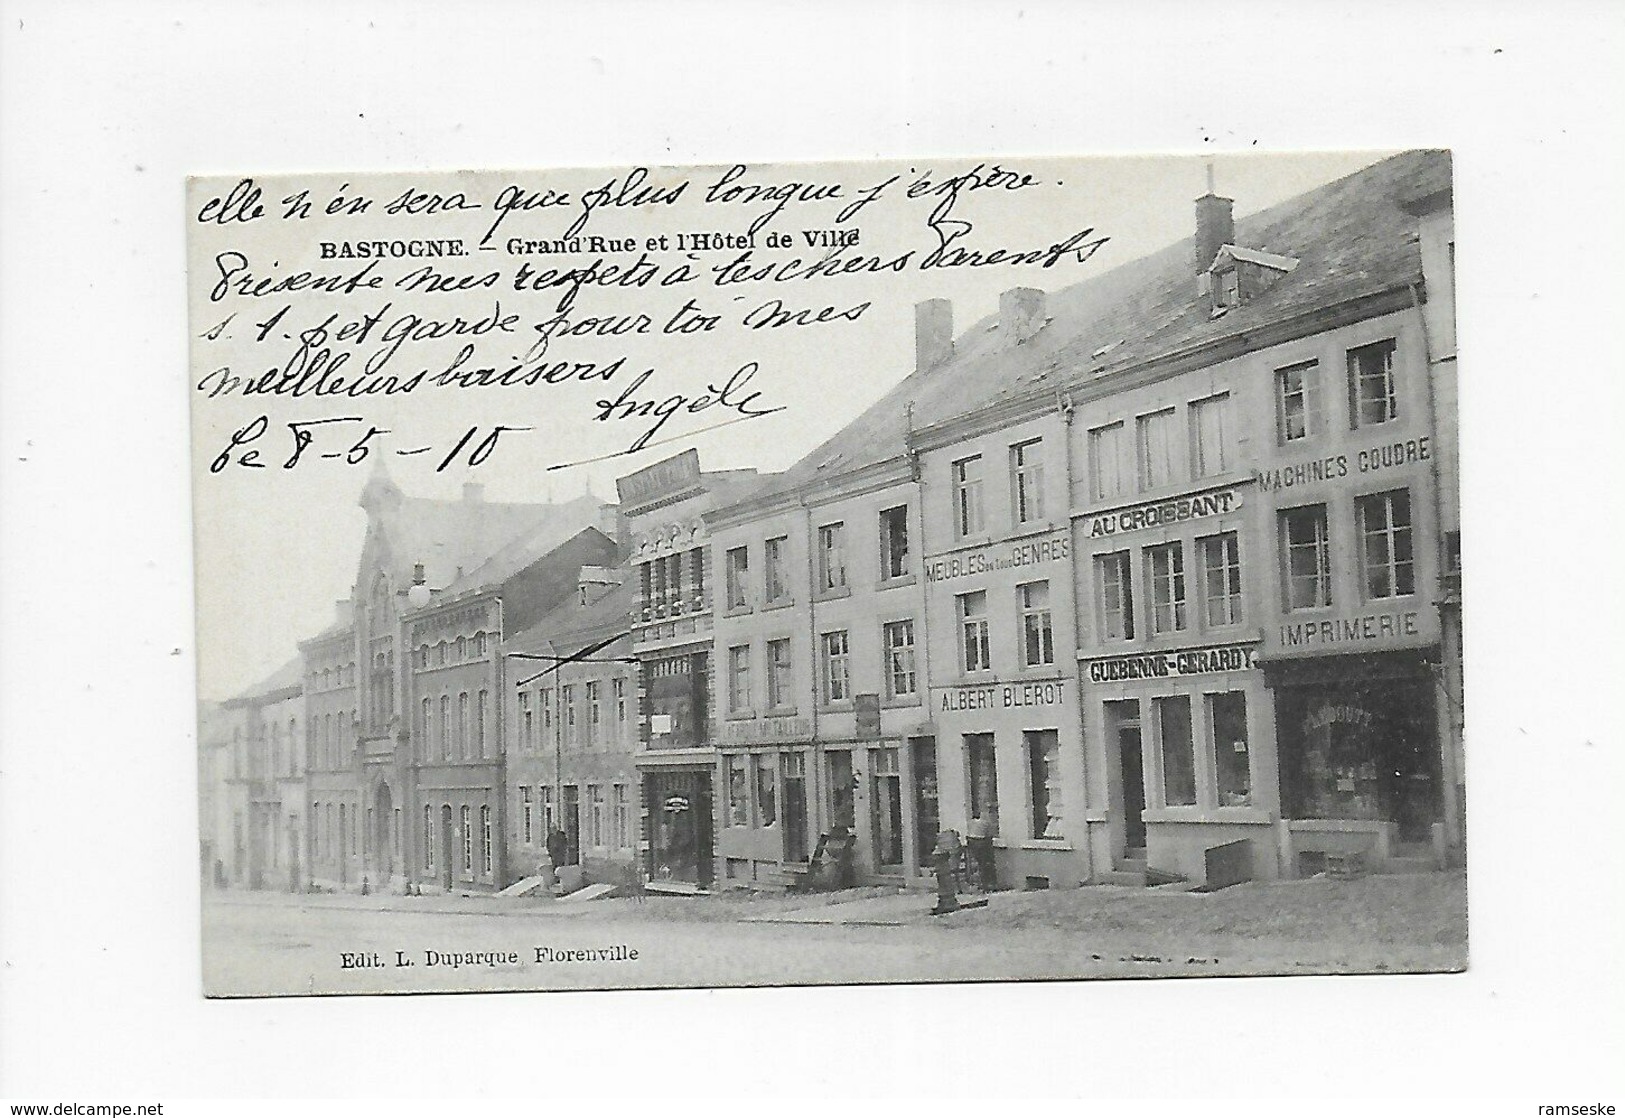 elle n'en sera que plus longue j'espère.
BASTOGNE. – Grand'Rue et l'Hôtel de Ville
Présente mes respets à tes chers Parents
s. t. p et garde pour toi mes
meilleurs baisers
Angèle
Le 8-5-10
MACHINES COUDRE
AU CROISSANT
MEUBLES en tous GENRES
IMPRIMERIE
GUEBENNE-GERARDY
ALBERT BLEROT
Edit. L. Duparque, Florenville
delcampe.net
ramseske